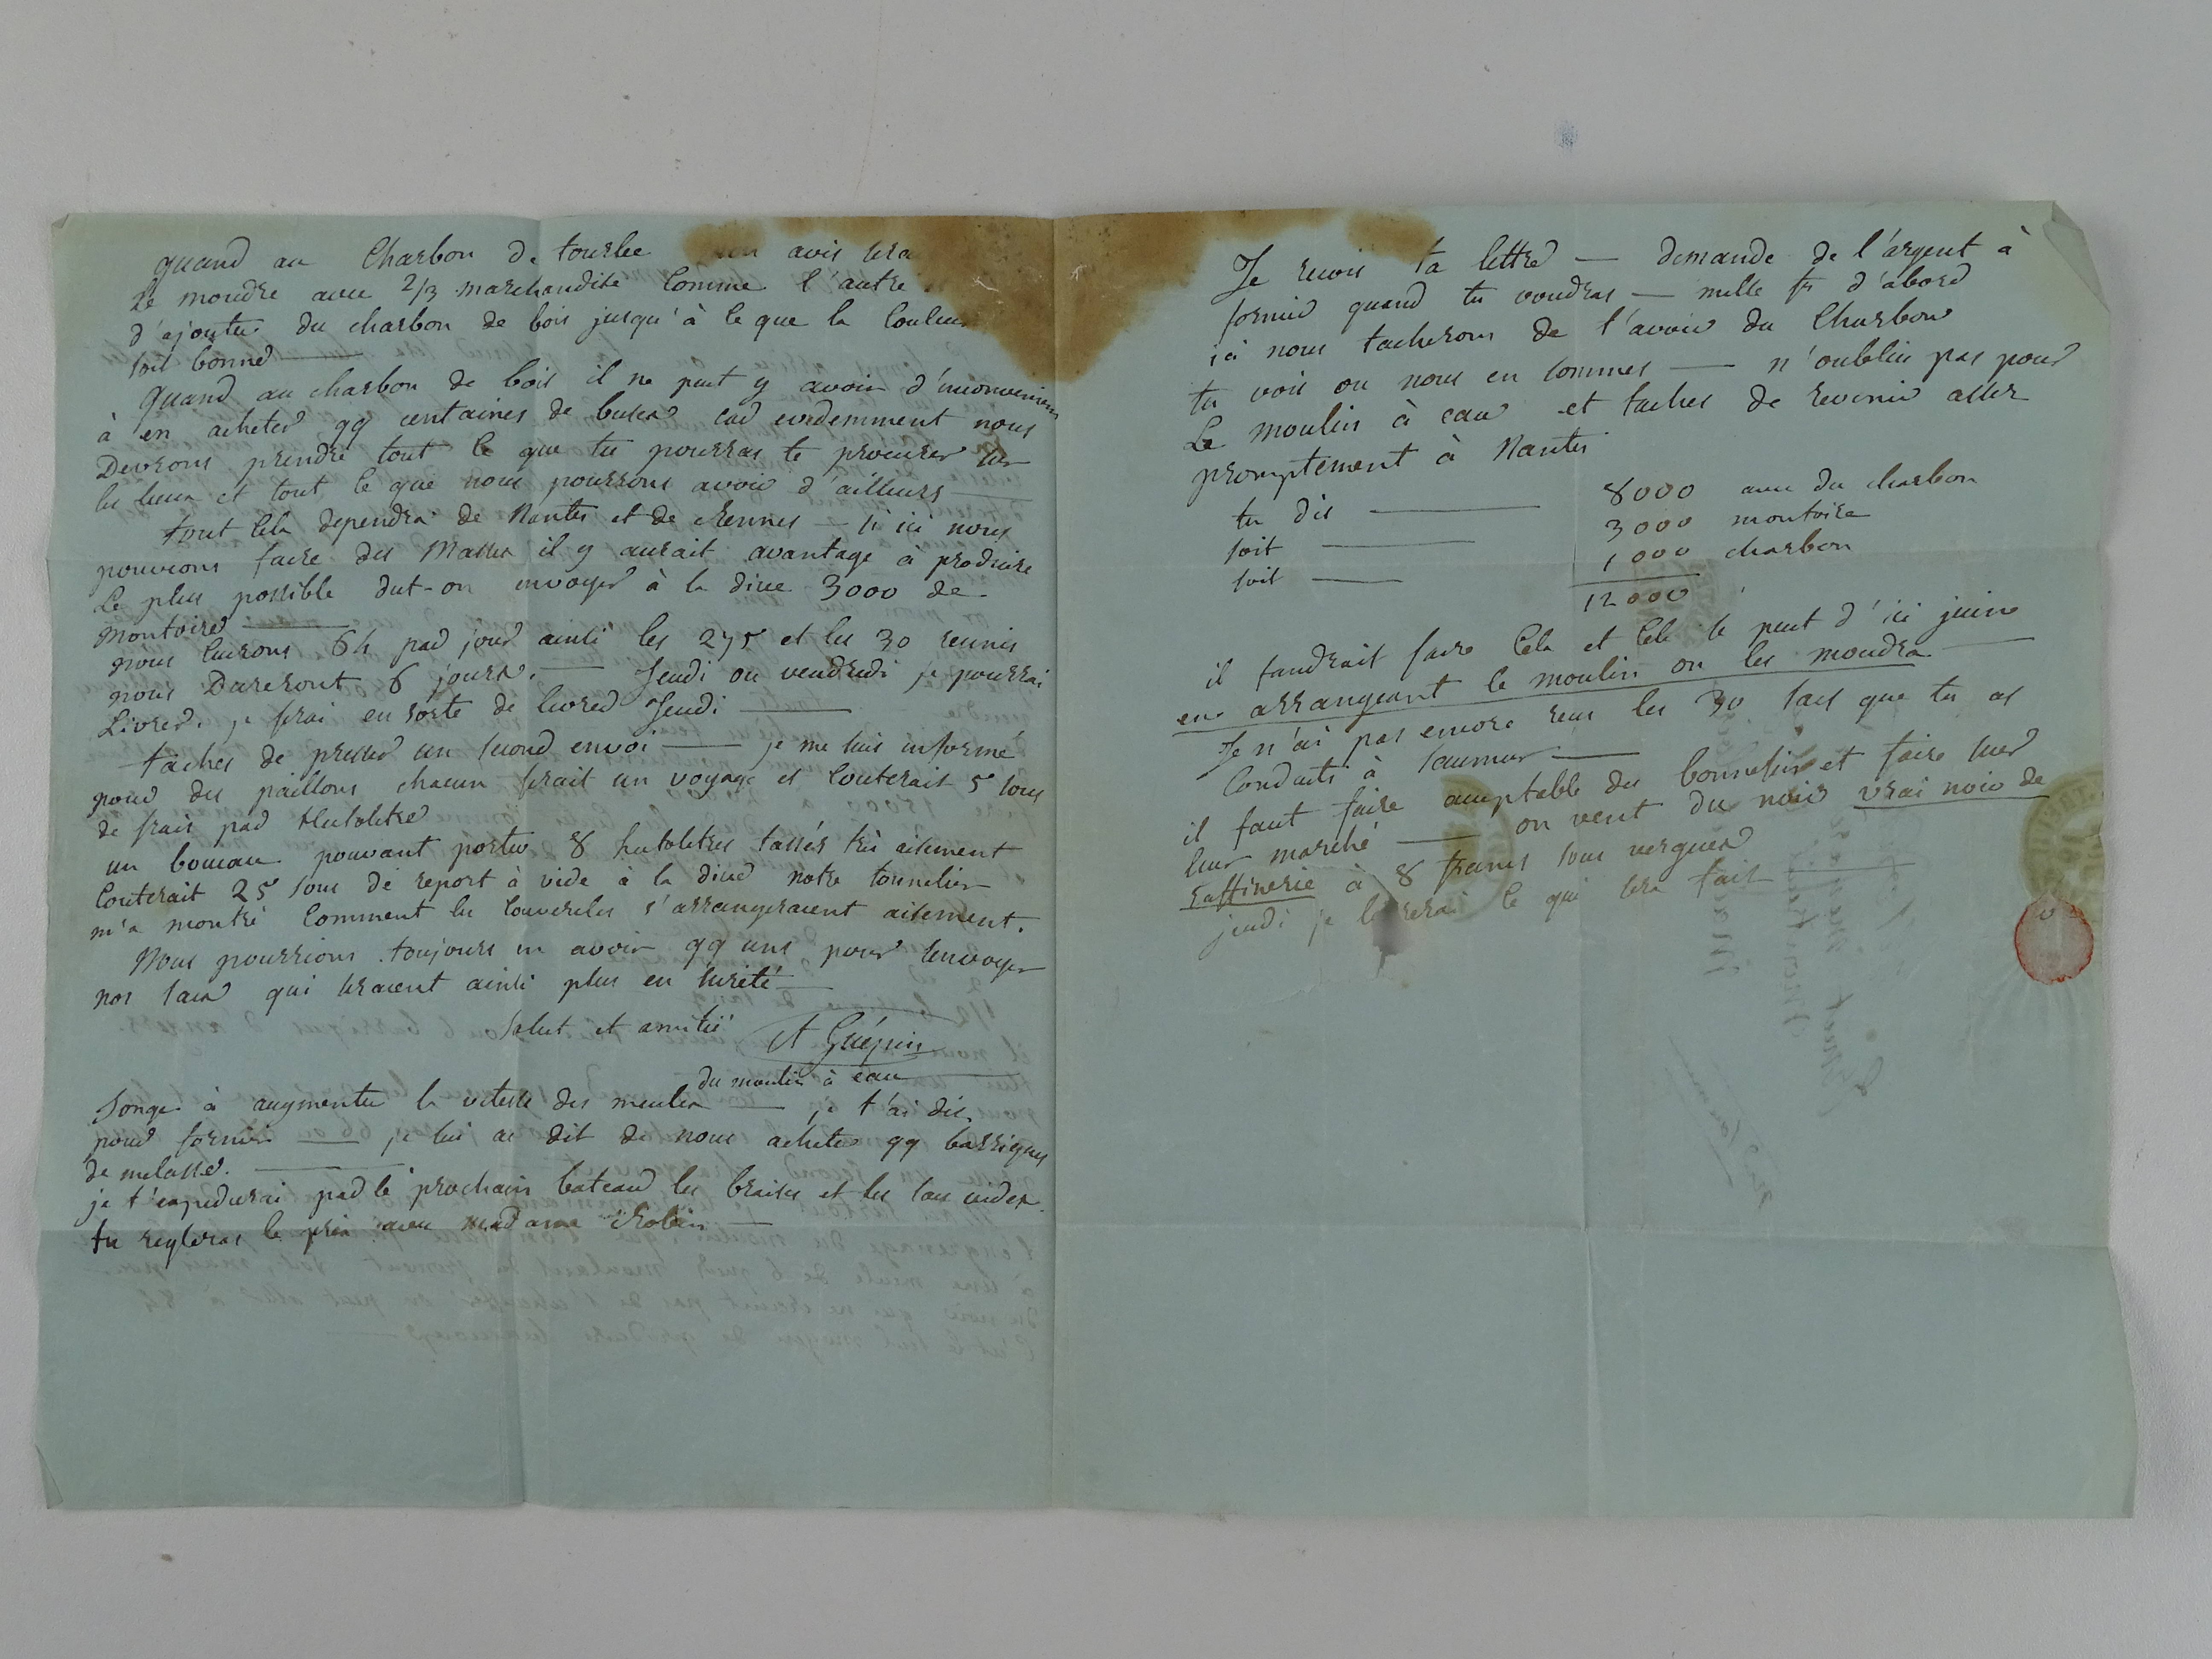 quand au Charbon de tourbe mon avis sera
de moudre avec 2/3 marchandise comme l'autre
d'ajouter du charbon de bois jusqu'à ce que la couleur
soit bonne —
Quand au charbon de bois il ne peut y avoir d'inconvenien
à en acheter qq centaines de busses car evidemment nous
Devrons prendre tout ce que tu pourras te procurer sur
les lieux et tout ce que nous pourrons avoir d'ailleurs —
tout cela dependra de Nantes et de Rennes — si ici nous
pouvions faire des Masses il y aurait avantage à produire
Le plus possible dut-on envoyer à la dive 3000 de
montoire —
nous cuirons 64 par jour ainsi les 275 et les 30 reunis
nous Dureront 6 jours. — Jeudi ou vendredi je pourrai
Livrer. je ferai en sorte de livrer Jeudi —
taches de presser un second envoi — je me suis informé
pour des paillons chacun ferait un voyage et couterait 5 sous
de frais par Hectolitre
un boucau pouvant porter 8 hectolitres tassés très aisement
couterait 25 sous de report à vide à la dive notre tonnelier
m'a montré comment les couvercles s'arrangeraient aisement.
Nous pourrions toujours en avoir qq uns pour renvoyer
nos sacs qui seraient ainsi plus en sureté —
Salut et amitié A Guépin
du moulin à eau —
Songe à augmenter la vitesse des meules — je t'ai dis
pour fornier — je lui ai dit de nous acheter qq barriques
de melasse. —
je t'expedierai par le prochain bateau les braises et les sacs vides.
tu regleras le prix avec madame Robin —
Je recois ta lettre — demande de l'argent à
fornier quand tu voudras — mille fr d'abord
ici nous tacherons de t'avoir du Charbon
tu vois ou nous en sommes — n'oublie pas pour
Le moulin à eau et taches de revenir assez
promptement à Nantes
tu dis — 8000 avec du charbon
soit — 3000 montoire
soit — 1000 charbon
12000
il faudrait faire cela et cela se peut d'ici juin
en arrangeant le moulin on les moudra —
Je n'ai pas encore reçu les 30 sacs que tu as
Conduits à saumur —
il faut faire emptable du bonnesin et faire suer
leur marché — on vent du noir vrai noir de
raffinerie à 8 francs sous vergues
jeudi je livrerai ce qui sera fait —